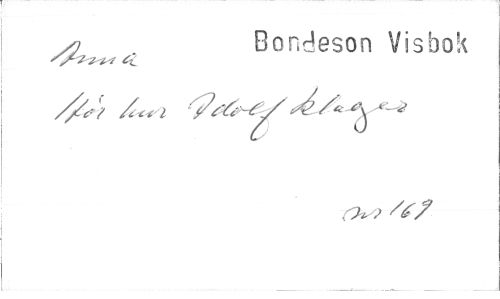 Bondeson Visbok
Anna
Hör hur Adolf klagar
nr 169